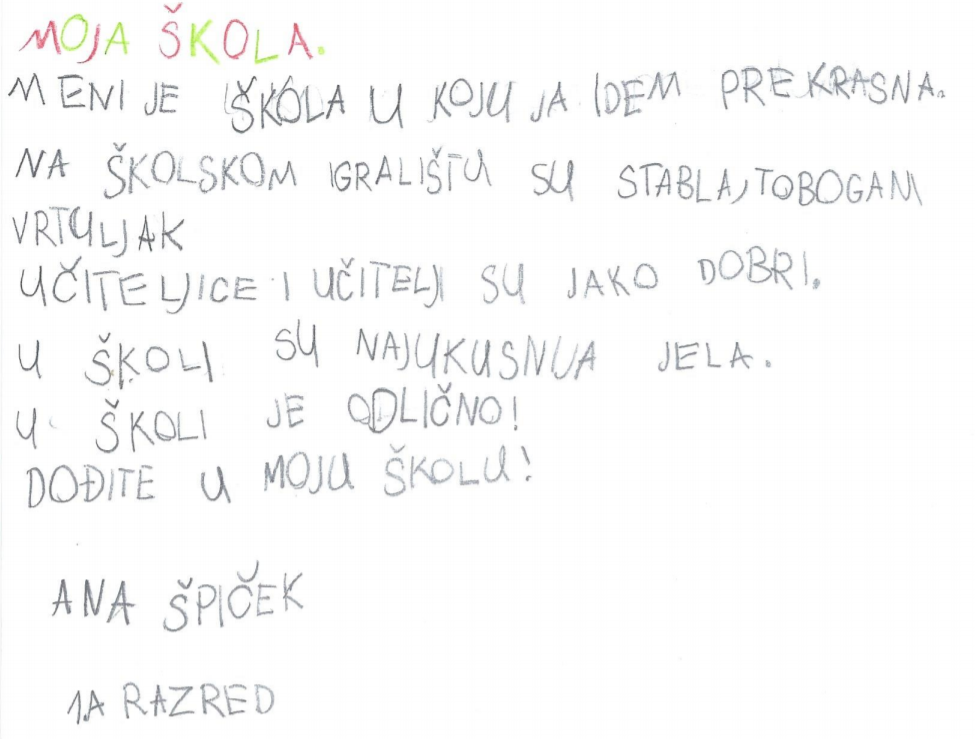 MOJA ŠKOLA.
MENI JE ŠKOLA U KOJU JA IDEM PREKRASNA.
NA ŠKOLSKOM IGRALIŠTU SU STABLA, TOBOGANI
VRTULJAK
UČITELJICE I UČITELJI SU JAKO DOBRI.
U ŠKOLI SU NAJUKUSNIJA JELA.
U ŠKOLI JE ODLIČNO!
DOĐITE U MOJU ŠKOLU!
ANA ŠPIČEK
1.A RAZRED